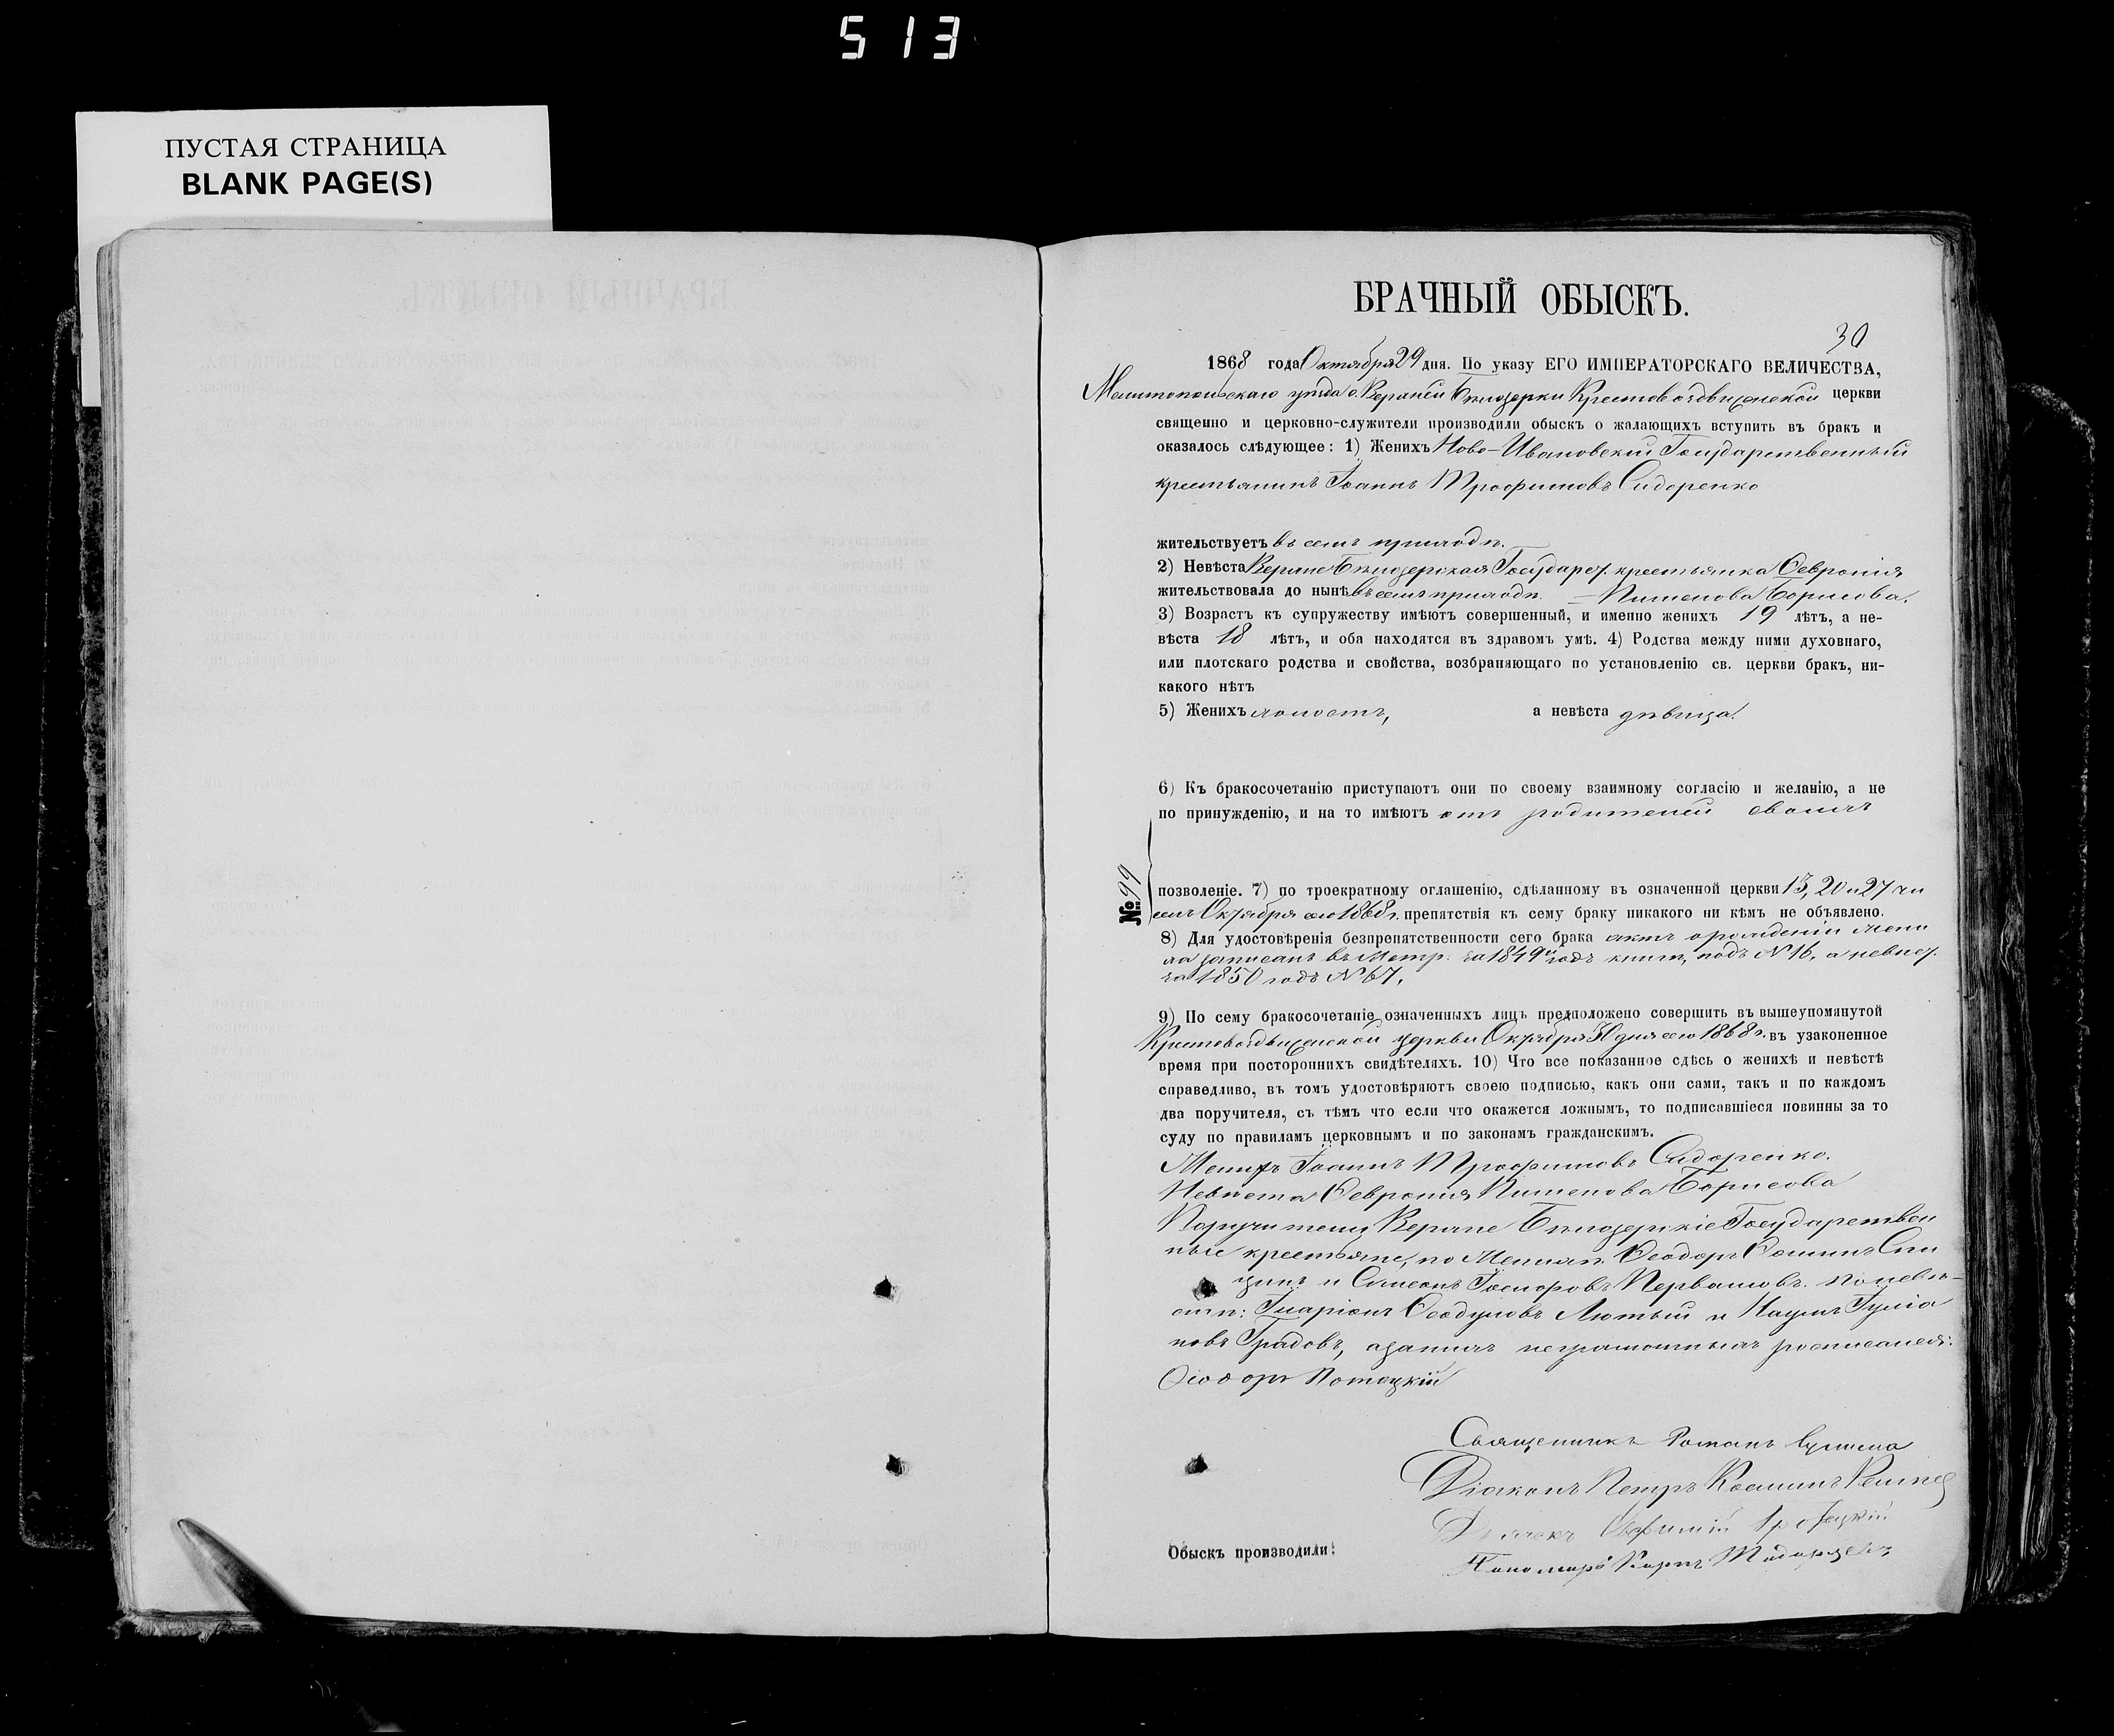 513
ПУСТАЯ СТРАНИЦА
BLANK PAGE(S)
БРАЧНЫЙ ОБЫСКЪ.
30
1868 года Октября 29 дня. По указу ЕГО ИМПЕРАТОРСКАГО ВЕЛИЧЕСТВА,
Мелитопольскаго уѣзда с. Верхней Бѣлозерки Крестовоздвиженской церкви
священно и церковно-служители производили обыскъ о жалающихъ вступить въ бракъ и
оказалось слѣдующее: 1) Женихъ Ново-Ивановскій Государственный
крестьянинъ Іоаннъ Трофимовъ Сидоренко
жительствуетъ въ семъ приходѣ.
2) Невѣста Верхне Бѣлозерская Государст. крестьянка Ѳевронія
жительствовала до нынѣ въ семъ приходѣ. — Пименова Борисова.
3) Возрастъ къ супружеству имѣютъ совершенный, и именно женихъ 19 лѣтъ, а не-
вѣста 18 лѣтъ, и оба находятся въ здравомъ умѣ. 4) Родства между ними духовнаго,
или плотскаго родства и свойства, возбраняющаго по установленію св. церкви бракъ, ни-
какого нѣтъ
5) Женихъ холостъ, а невѣста дѣвица.
6) Къ бракосочетанію приступаютъ они по своему взаимному согласію и желанію, а не
по принужденію, и на то имѣютъ отъ родителей своихъ
№ 99
позволеніе. 7) по троекратному оглашенію, сдѣланному въ означенной церкви 13, 20 и 27 чи
селъ Октября сего 1868 г. препятствія къ сему браку никакого ни кѣмъ не объявлено.
8) Для удостовѣренія безпрепятственности сего брака актъ о рожденіи жени
ха записанъ въ Метр. за 1849й годъ книги, подъ № 16, а невѣст.
за 1850 годъ № 67.
9) По сему бракосочетаніе означенныхъ лицъ предположено совершить въ вышеупомянутой
Крестовоздвиженской церкви Октября 30 дня сего 1868 г. въ узаконенное
время при постороннихъ свидѣтеляхъ. 10) Что все показанное сдѣсь о женихѣ и невѣстѣ
справедливо, въ томъ удостовѣряютъ своею подписью, какъ они сами, такъ и по каждомъ
два поручителя, съ тѣмъ что если что окажется ложнымъ, то подписавшіеся повинны за то
суду по правиламъ церковнымъ и по законамъ гражданскимъ.
Женихъ Іоаннъ Трофимовъ Сидоренко.
Невѣста Ѳевронія Пименова Борисова
Поручители Верхне Бѣлозерскіе Государствен
ные крестьяне, по Женихѣ Ѳеодоръ Ѳоминъ Спи
цинъ и Симеонъ Первашовъ. по невѣ-
стѣ: Иларіонъ Ѳеодуловъ Лютый и Наумъ Гуліа
новъ Градовъ, а за нихъ неграмотныхъ росписался:
Ѳіодоръ Потоцкій
Священникъ Романъ
Діаконъ Петръ Косминъ
Дьячекъ Евфимій
Пономарь Карпъ
Обыскъ производили: